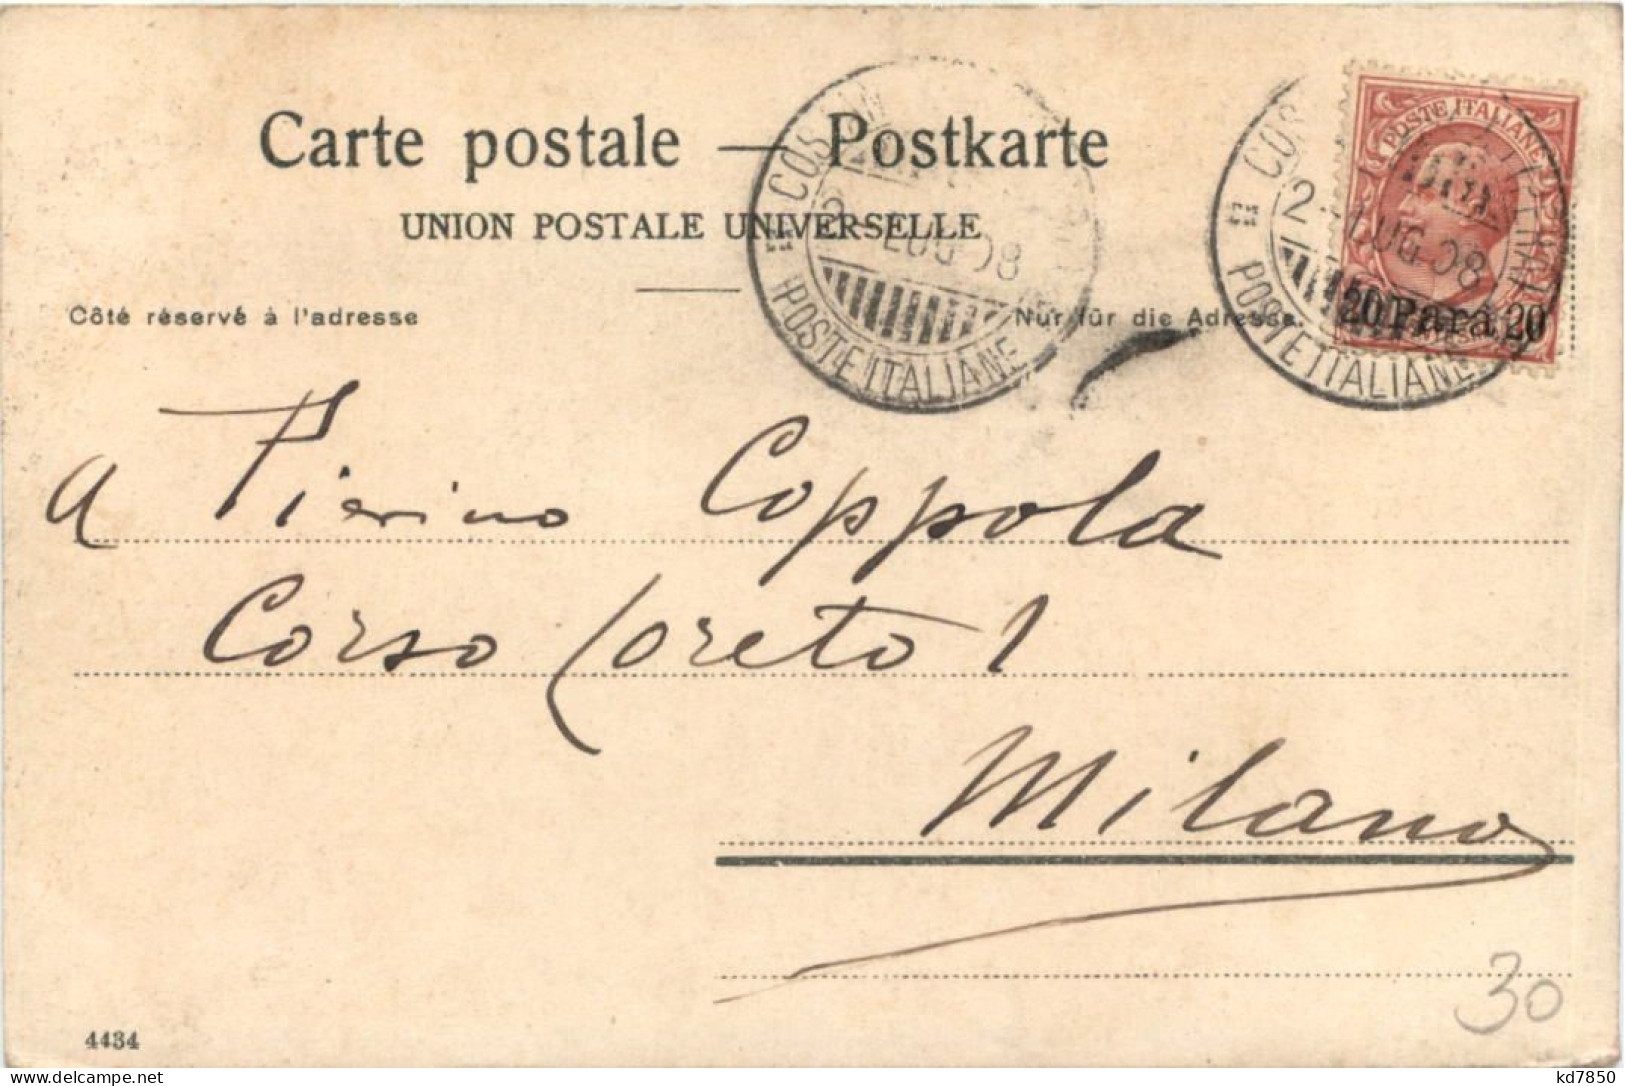 Carte postale — Postkarte
UNION POSTALE UNIVERSELLE
Côté réservé à l'adresse
Nur für die Adresse.
2 - LUG 08
POSTE ITALIANE
2 - LUG 08
POSTE ITALIANE
POSTE ITALIANE
20 Para 20
a Pierino Coppola
Corso Loreto 1
Milano
30
4434
kd7850